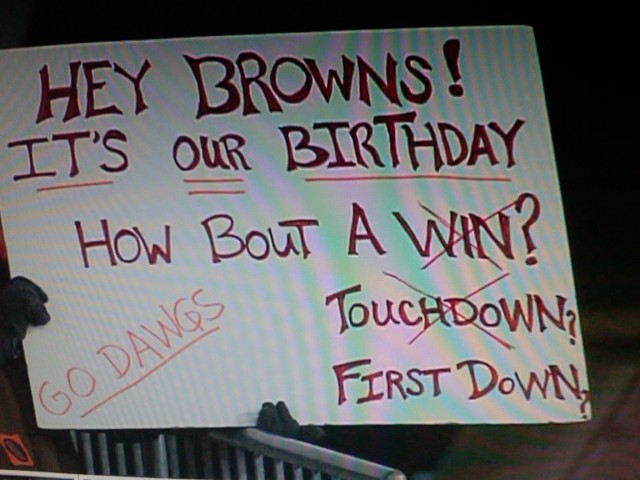 HEY BROWNS!
IT'S OUR BIRTHDAY
HOW BOUT A WIN?
TOUCHDOWN?
FIRST DOWN?
GO DAWGS